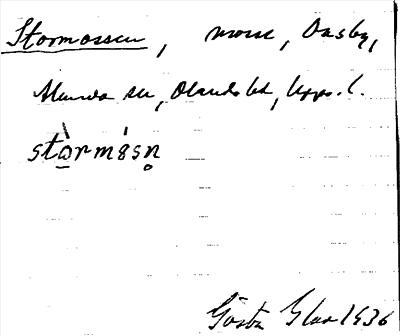 Stormossen, mosse, Onsby,
Munda sn, Olands hd, Upps. l.
stòrmósn
Gösta Glas 1936